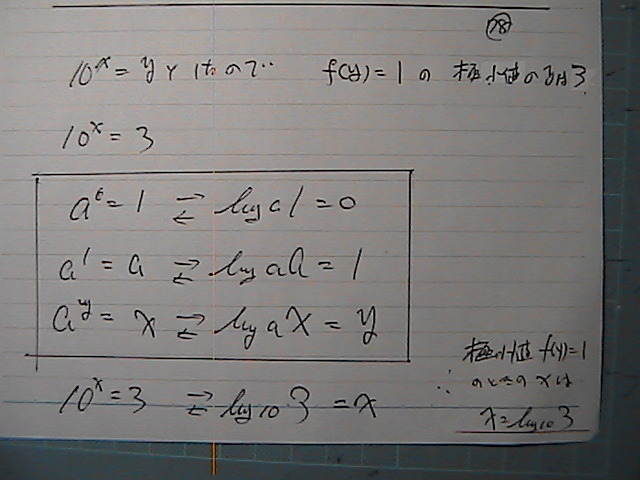 78
10^x = y と けたので f(y) = 1 の 極小値の yは 3
10^x = 3
a^0 = 1 ⇄ log a 1 = 0
a^1 = a ⇄ log a a = 1
a^y = x ⇄ log a x = y
10^x = 3 ⇄ log 10 3 = x
極小値 f(y) = 1
∴ のときの xは
x = log 10 3